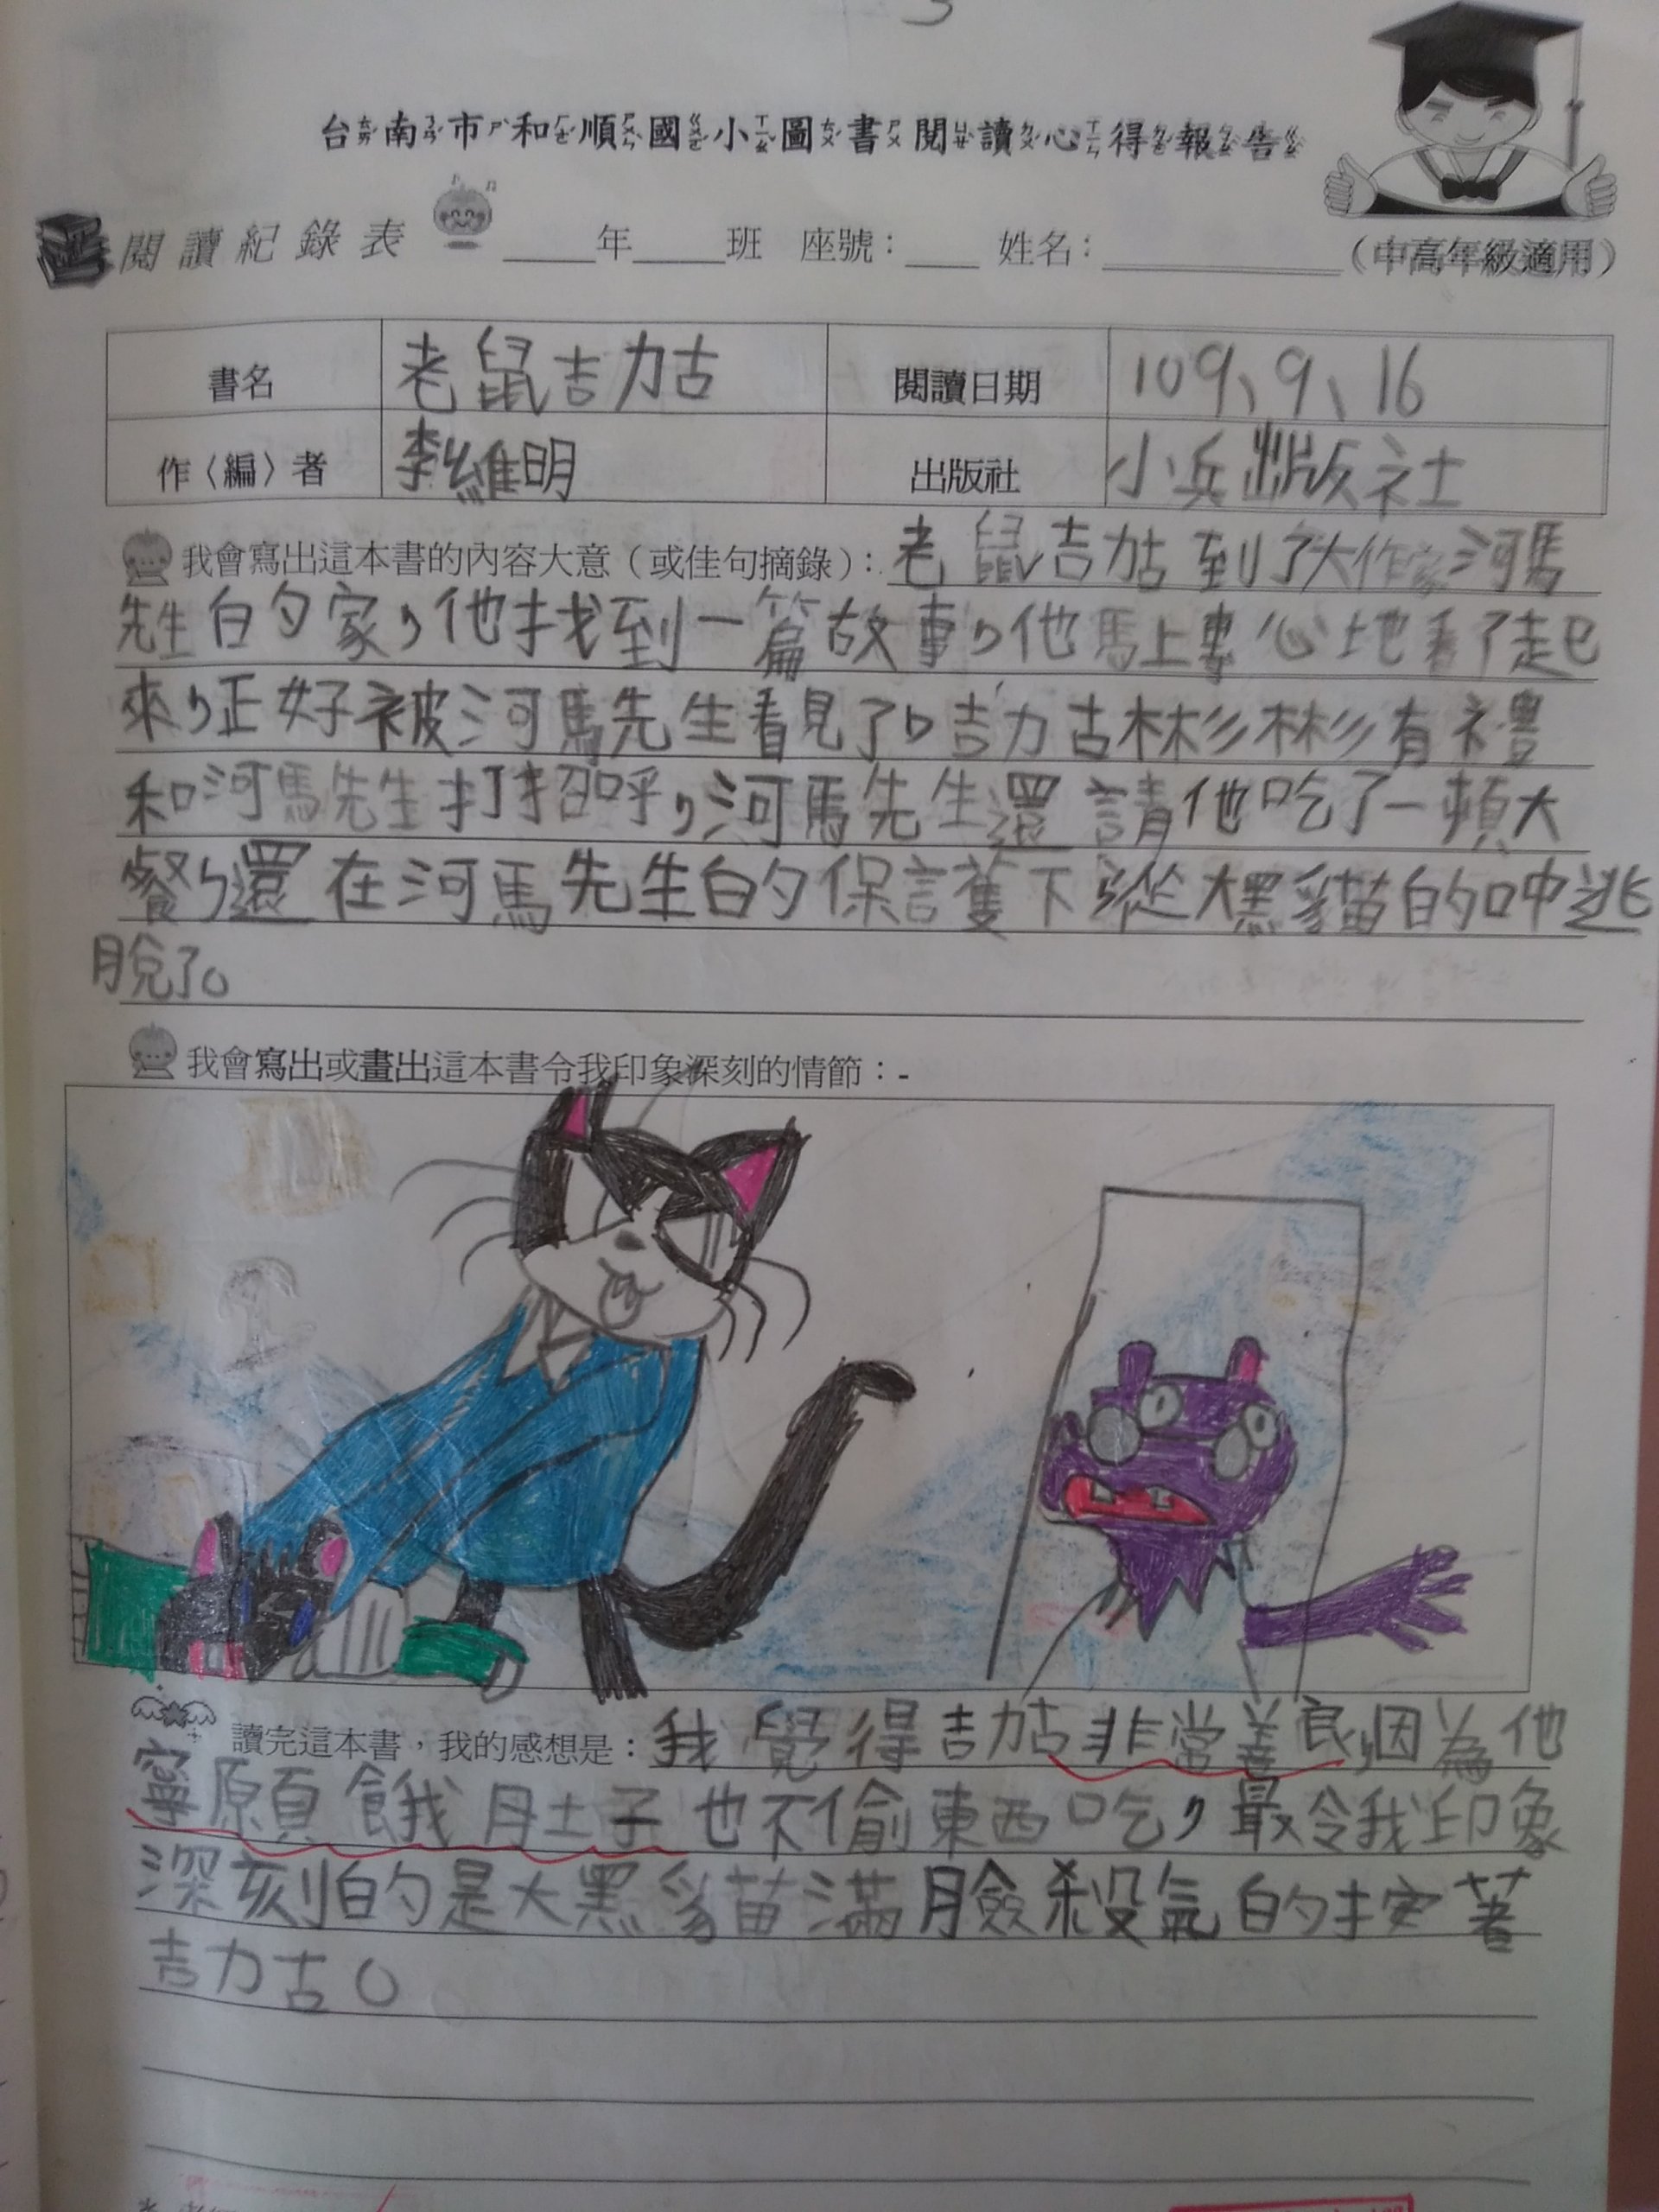 台南市和順國小圖書閱讀心得報告
閱讀紀錄表 ____年____班 座號：___ 姓名：__________（中高年級適用）
書名 老鼠吉力古 閱讀日期 109、9、16
作〈編〉者 李維明 出版社 小兵出版社
我會寫出這本書的內容大意（或佳句摘錄）：老鼠吉力古到了大作家河馬
先生的家，他找到一篇故事，他馬上專心地看了起
來，正好被河馬先生看見了，吉力古彬彬有禮
和河馬先生打招呼，河馬先生還請他吃了一頓大
餐，還在河馬先生的保護下，從大黑貓的口中逃
脫了。
我會寫出或畫出這本書令我印象深刻的情節：
讀完這本書，我的感想是：我覺得吉力古非常善良，因為他
寧願餓肚子也不偷東西吃，最令我印象
深刻的是大黑貓滿臉殺氣的按著
吉力古。